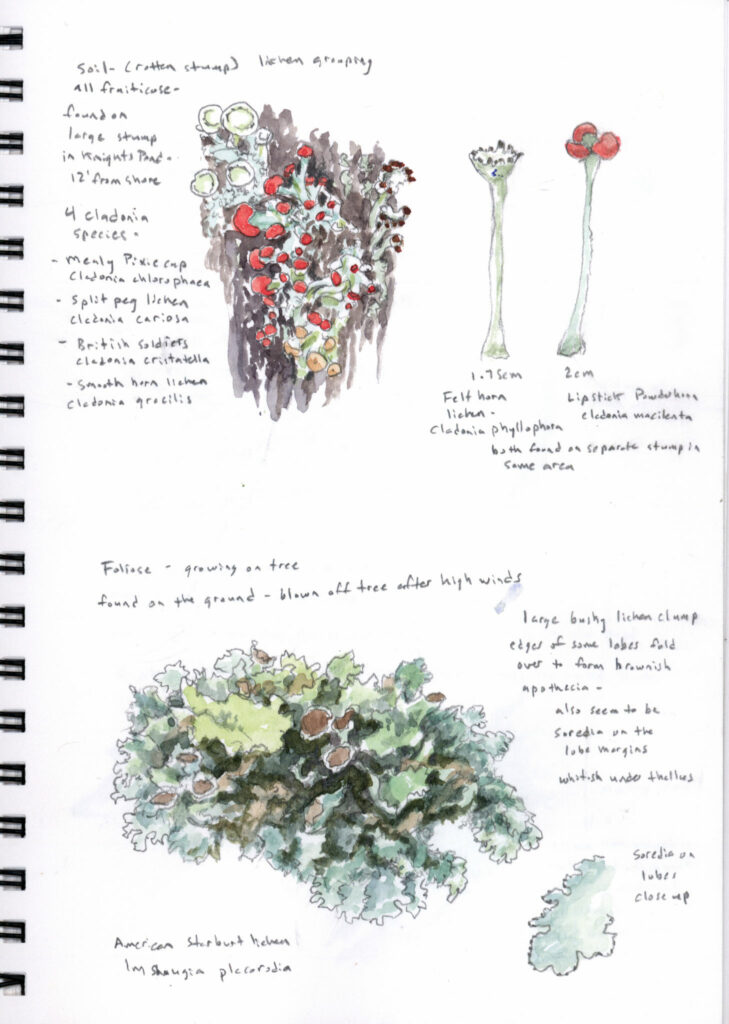 Soil- (rotten stump) lichen grouping
all fruiticose-
found on
large stump
in Knights Pond.
12' from shore
4 cladonia
species-
- mealy Pixie cup
Cladonia chlorophaea
- Split peg lichen
cladonia cariosa
- British soldiers
cladonia cristatella
- Smooth horn lichen
cladonia gracilis
1.75cm
Felt horn
lichen-
Cladonia phyllophora
2cm
Lipstick Powderhorn
cladonia macilenta
both found on separate stump in
same area
Foliose - growing on tree
found on the ground - blown off tree after high winds
large bushy lichen clump
edges of some lobes fold
over to form brownish
apothecia-
also seem to be
soredia on the
lobe margins
whitish under thallus
Soredia on
lobes
close up
American Starburt lichen
Imshaugia placorodia